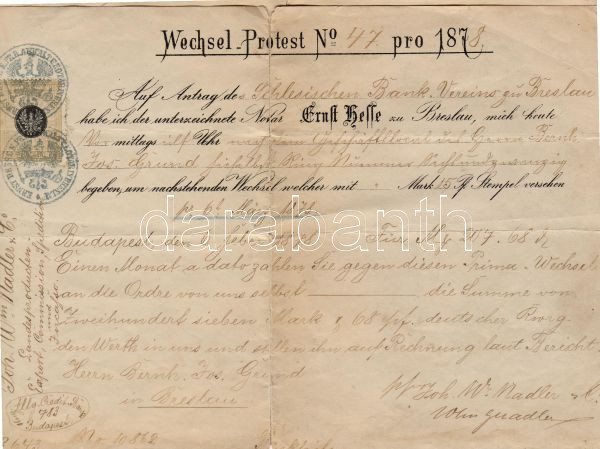 Wechsel-Protest No 47. pro 1878,
Auf Antrag des Schlesischen Bank-Vereins zu Breslau
habe ich der unterzeichnete Notar Ernst Hesse zu Breslau, mich heute
Vormittags elf Uhr nach dem Geschäftslocal des Herrn Bernh.
Jos. Grund hieselbst Ring
begeben, um nachstehenden Wechsel welcher mit Mark 15 Pf Stempel versehen
pr 6t März 1878
Budapest, den 6 Feb. 1878 Für Mk 207.68 d
Einen Monat a dato zahlen Sie gegen diesen Prima-Wechsel
an die Ordre von uns selbst die Summe von
Zweihundert sieben Mark & 68 Pf. deutscher Rwrg
den Werth in uns und stellen ihn auf Rechnung laut Bericht.
Herrn Bernh. Jos. Grund
in Breslau
ppr Joh. Wm Nadler & C.
Joh. Wm Nadler & Co
Landesproducten
Export, Commission, Spedition
und
Incasso
783
Budapest
No 10862
darabanth